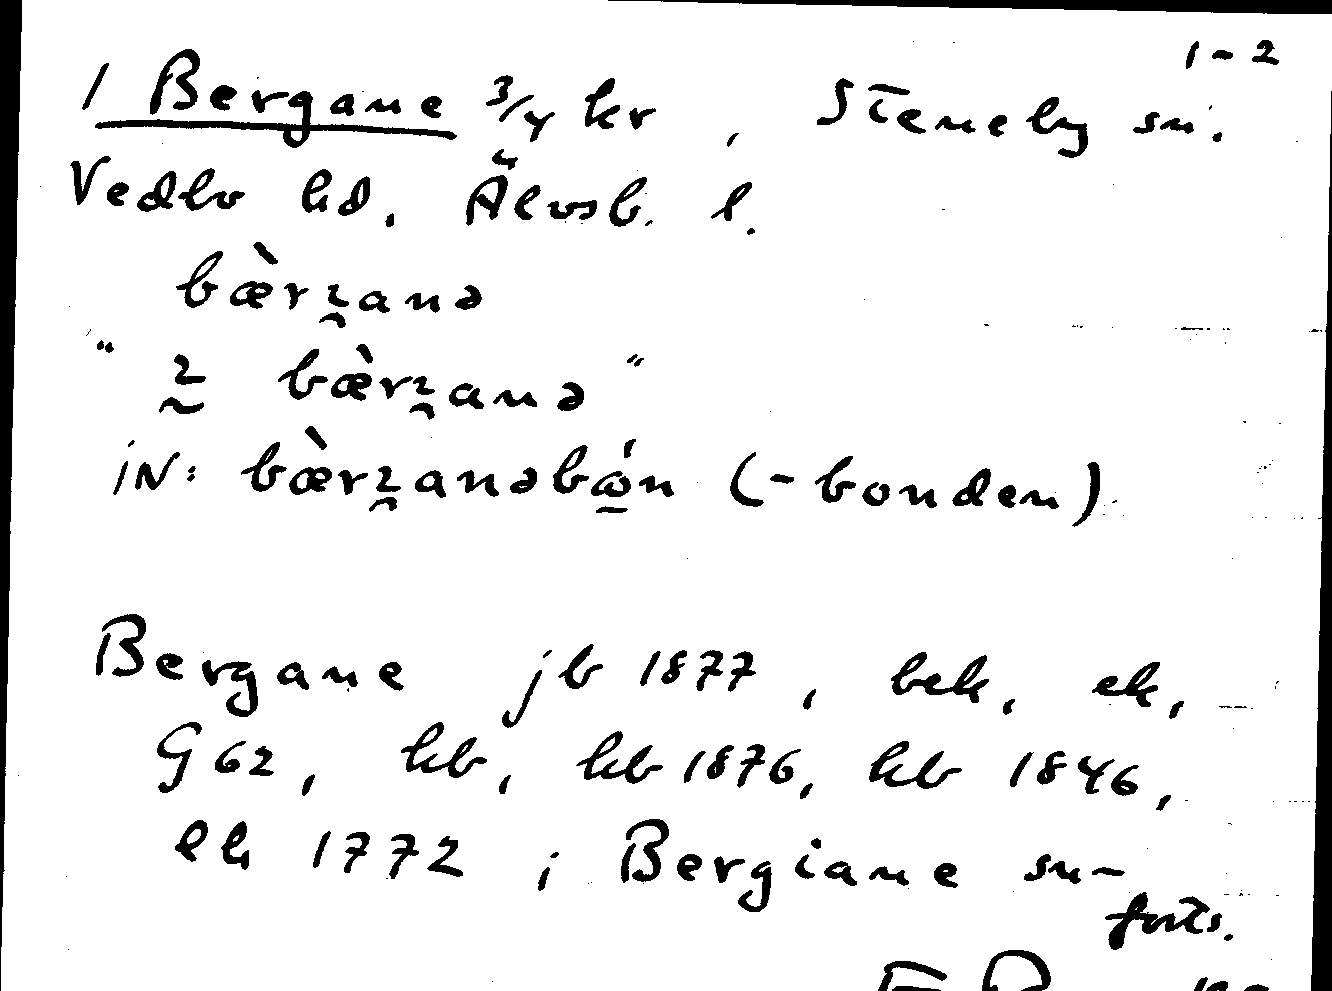 1-2
1 Bergane 3/4 kr, Steneby sn.
Vedbo hd. Älvsb. l.
bæ̀rʒanə
"2 bæ̀rʒanə"
iN: bæ̀rʒanəbǫ́n (-bonden)
Bergane jb 1877, bek, ek,
G 62, kb, kb 1876, kb 1846,
lh 1772; Bergiane sn-
forts.